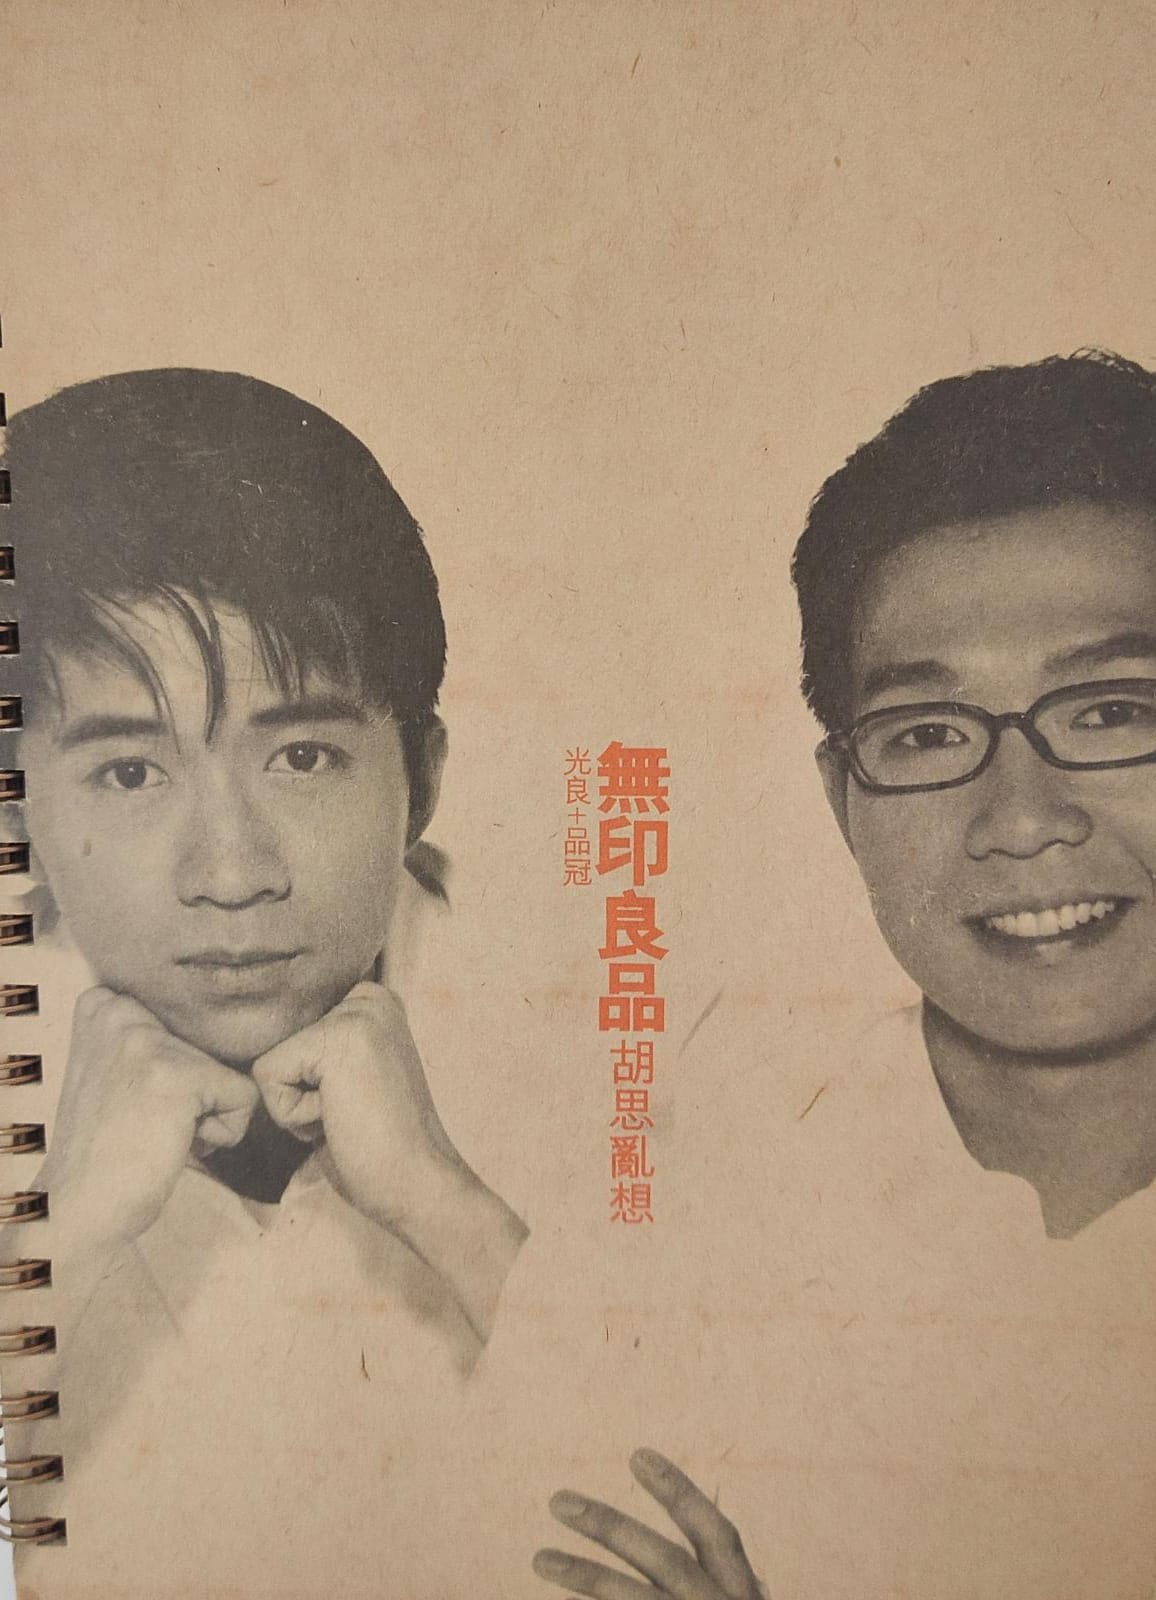 無印良品胡思亂想
光良+品冠